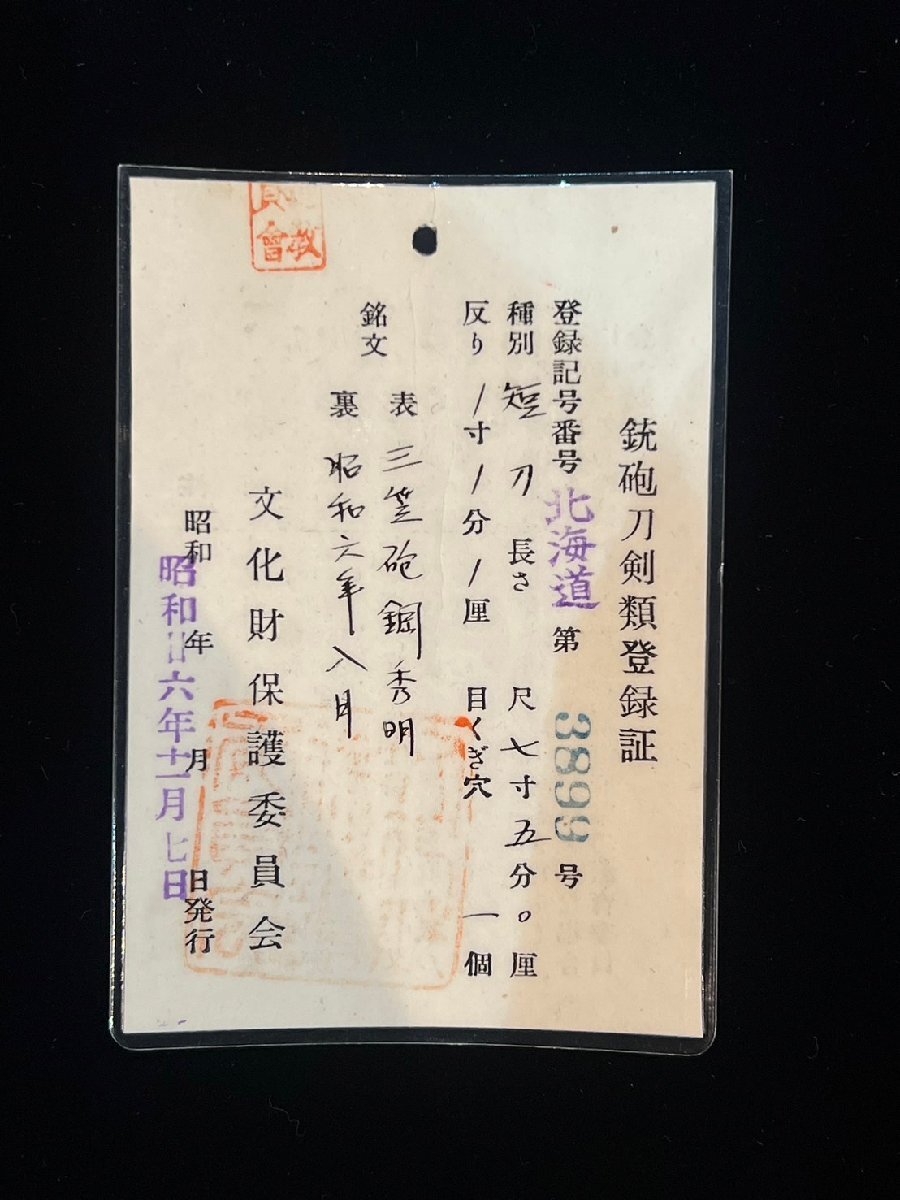 銃砲刀剣類登録証
登録記号番号 北海道 第 3899 号
種別 短刀 長さ 尺七寸五分０厘
反り /寸/分/厘 目くぎ穴 一個
銘文
表 三笠砲鋼秀明
裏 昭和六年八月
文化財保護委員会
昭和 年 月 日発行
昭和廿六年十一月七日
教
會